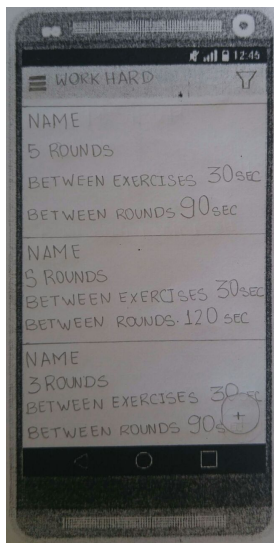 12:45
WORK HARD
NAME
5 ROUNDS
BETWEEN EXERCISES 30SEC
BETWEEN ROUNDS 90SEC
NAME
5 ROUNDS
BETWEEN EXERCISES 30SEC
BETWEEN ROUNDS. 120 SEC
NAME
3 ROUNDS
BETWEEN EXERCISES 30 SEC
BETWEEN ROUNDS 90S
+